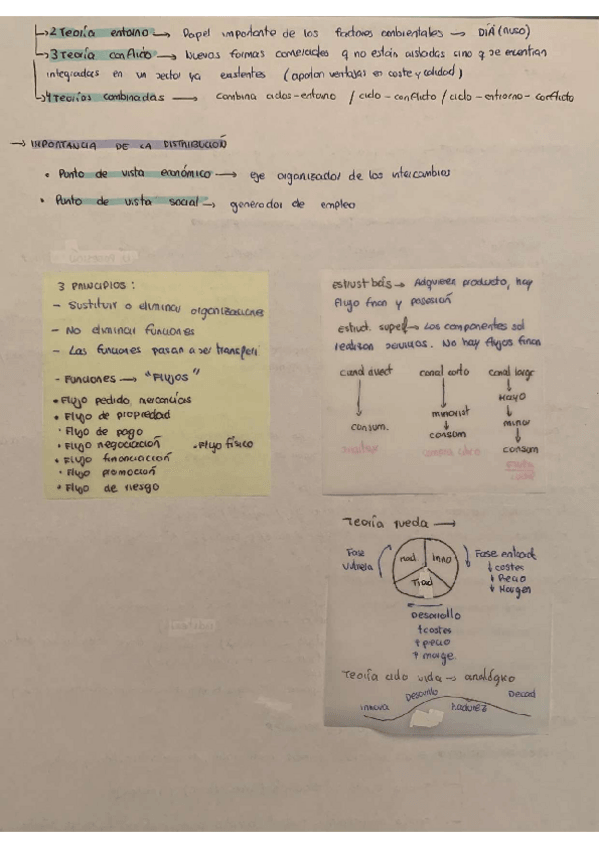 ↳ 2 Teoría entorno → Papel importante de los factores ambientales → DIA (nuso)
↳ 3 Teoría conflicto → Nuevas formas comerciales q no están aisladas sino q se encentran
integradas en un sector ya existentes (apotan ventajas en coste y calidad)
↳ 4 Teorías combinadas → combina ciclos-entorno / ciclo-conflicto / ciclo-entorno-conflicto
→ IMPORTANCIA DE LA DISTRIBUCIÓN
• Punto de vista económico → eje organizador de los intercambios
• Punto de vista social → generador de empleo
3 PRINCIPIOS:
- Sustituir o eliminar organizaciones
- No eliminar funciones
- Las funciones pasan a ser transferi
- Funciones → "Flujos"
• Flujo pedido mercancías
• Flujo de propiedad
• Flujo de pago
• Flujo negociación • Flujo físico
• Flujo financiación
• Flujo promoción
• Flujo de riesgo
estrust bás → Adquieren producto, hay
flujo finan y posesión
estruct. superf → Los componentes sol
realizan servicios. No hay flujos finan
canal direct canal corto canal largo
↓ ↓ ↓
Mayo
minorist minor
↓ ↓
consum. consum consum
Teoría rueda →
Fase
vulnera
mad. Inno
Trad
Fase entrada
↓ costes
↓ Precio
↓ Margen
Desarrollo
↑ costes
↑ precio
↑ marge.
Teoría ciclo vida → analógico
Innova Desarrollo Madurez Decad